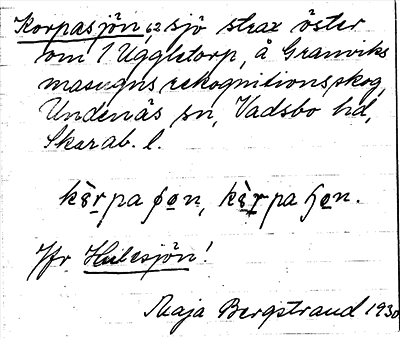 Korpasjön, 62 sjö strax öster
om 1 Uggletorp, å Granviks
masugns rekognitionsskog,
Undenäs sn, Vadsbo hd,
Skarab. l.
Jfr Hulesjön!
Maja Bergstrand 1930